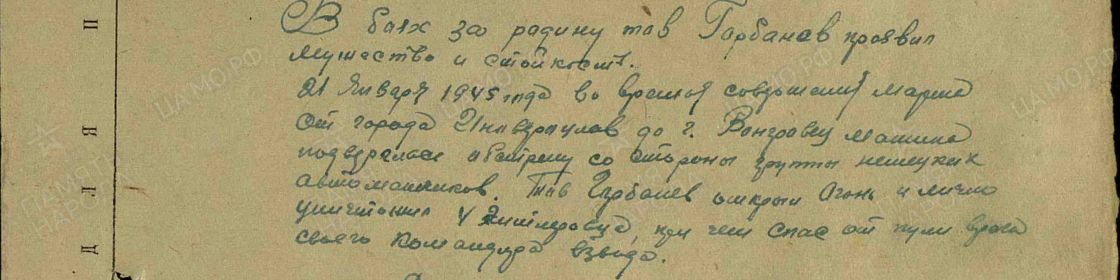 В боях за родину тов Горбанев проявил
мужество и стойкость.
21 Января 1945 года во время совершения марша
от города до г. Вонгровец машина
подверглась обстрелу со стороны группы немецких
автоматчиков. Тов Горбанев открыл огонь и лично
уничтожил 4 гитлеровца, при чем спас от пули врага
своего командира взвода.
П
Я
Л
Д